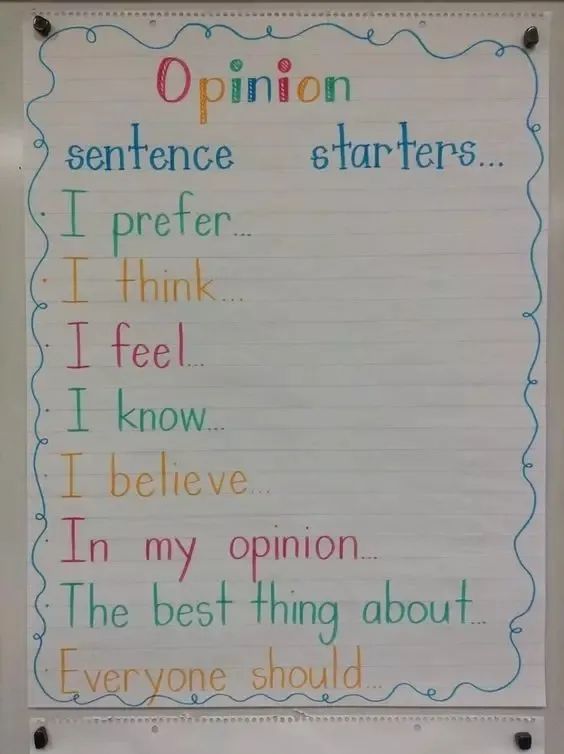 Opinion
sentence starters...
I prefer...
I think...
I feel...
I know...
I believe...
In my opinion...
The best thing about...
Everyone should...